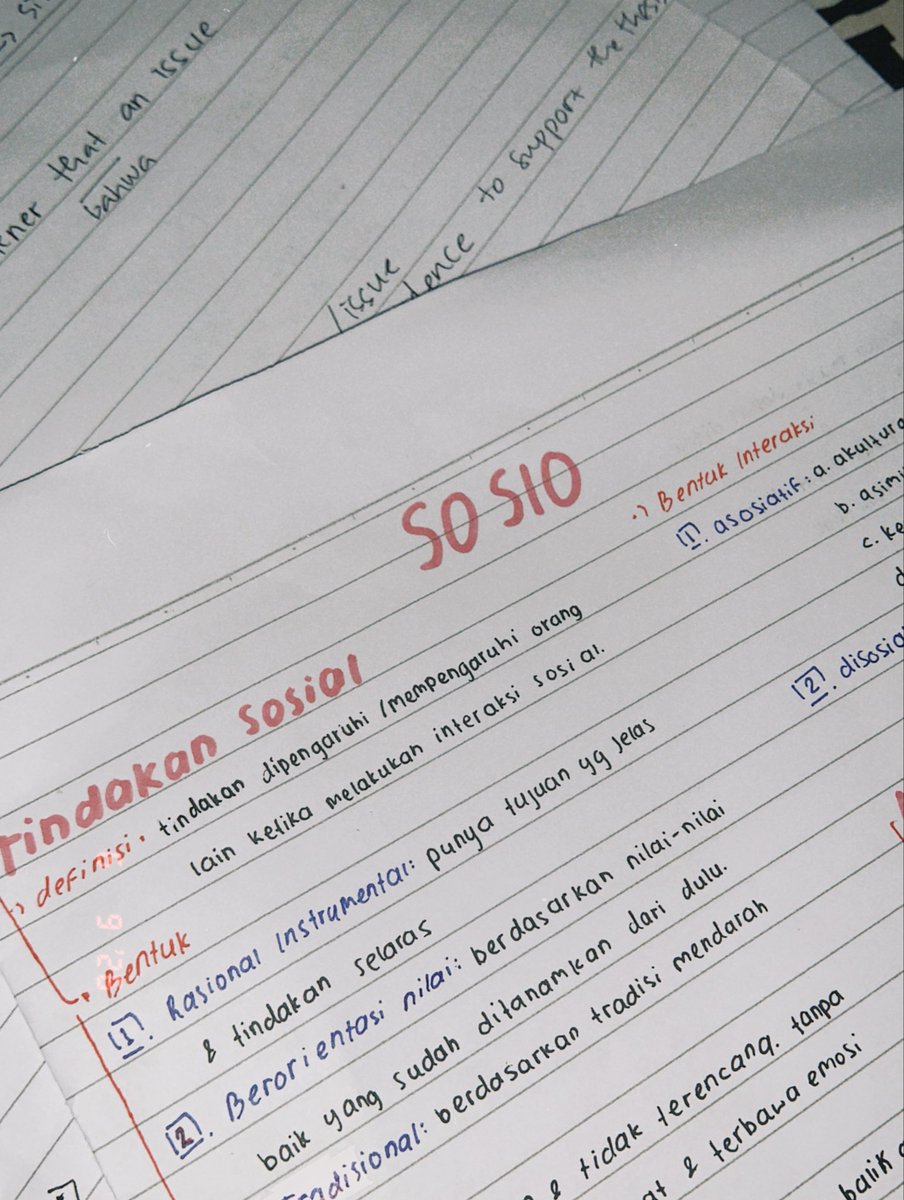 that an issue
bahwa
to support the thesis
/issue
SOSIO
Tindakan Sosial
definisi. tindakan dipengaruhi /mempengaruhi orang
lain ketika melakukan interaksi sosial.
Bentuk
1. Rasional Instrumental: punya tujuan yg jelas
& tindakan selaras
2. Berorientasi nilai: berdasarkan nilai-nilai
baik yang sudah ditanamkan dari dulu.
Tradisional: berdasarkan tradisi mendarah
& tidak terencana. tanpa
& terbawa emosi
balik
Bentuk Interaksi
1. asosiatif: a. akultura
b. asimi
c. ke
d
2. disosia